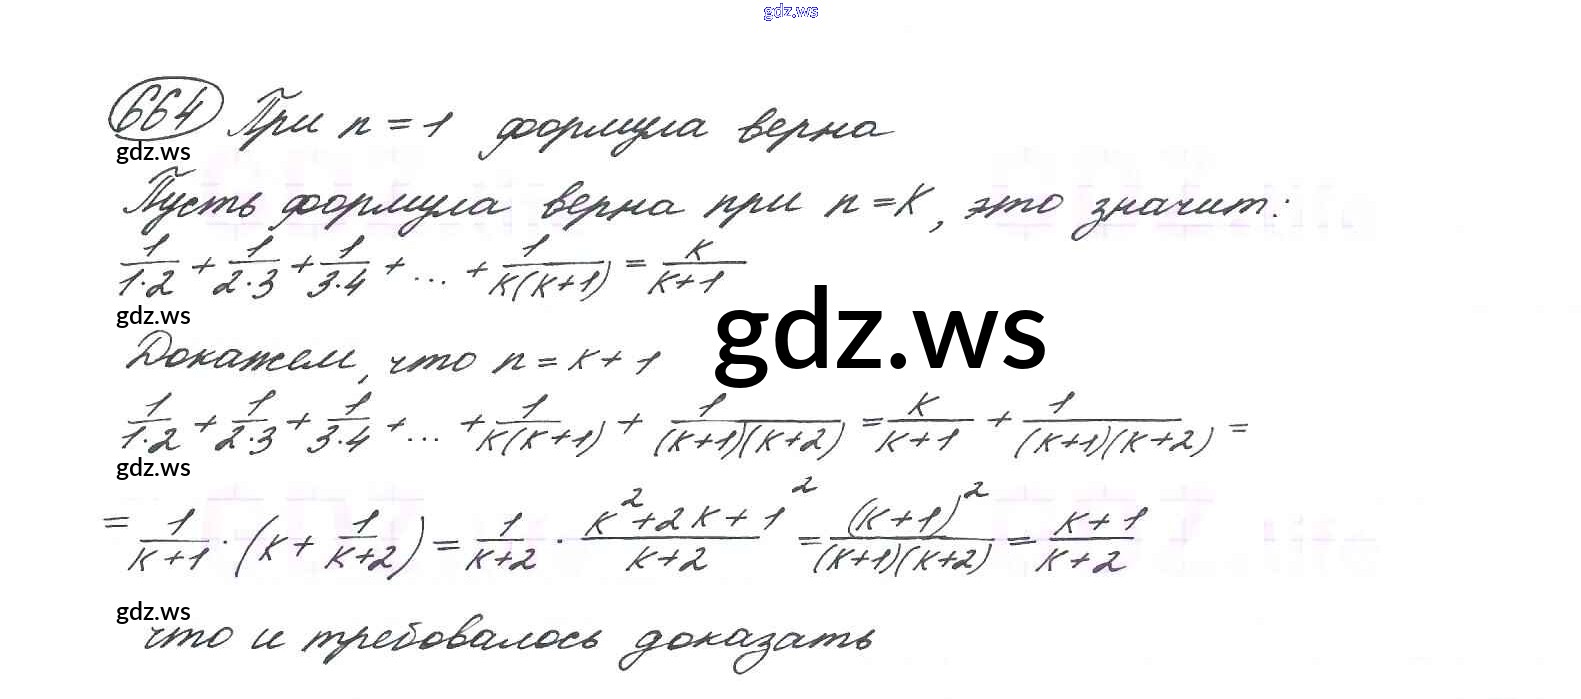 gdz.ws
664 При n = 1 формула верна
gdz.ws
Пусть формула верна при n = K, это значит:
1/(1·2) + 1/(2·3) + 1/(3·4) + ... + 1/(K(K+1)) = K/(K+1)
gdz.ws
gdz.ws
Докажем, что n = K + 1
1/(1·2) + 1/(2·3) + 1/(3·4) + ... + 1/(K(K+1)) + 1/((K+1)(K+2)) = K/(K+1) + 1/((K+1)(K+2)) =
gdz.ws
= 1/(K+1) · (K + 1/(K+2)) = 1/(K+2) · (K²+2K+1²)/(K+2) = (K+1)²/((K+1)(K+2)) = (K+1)/(K+2)
gdz.ws
что и требовалось доказать